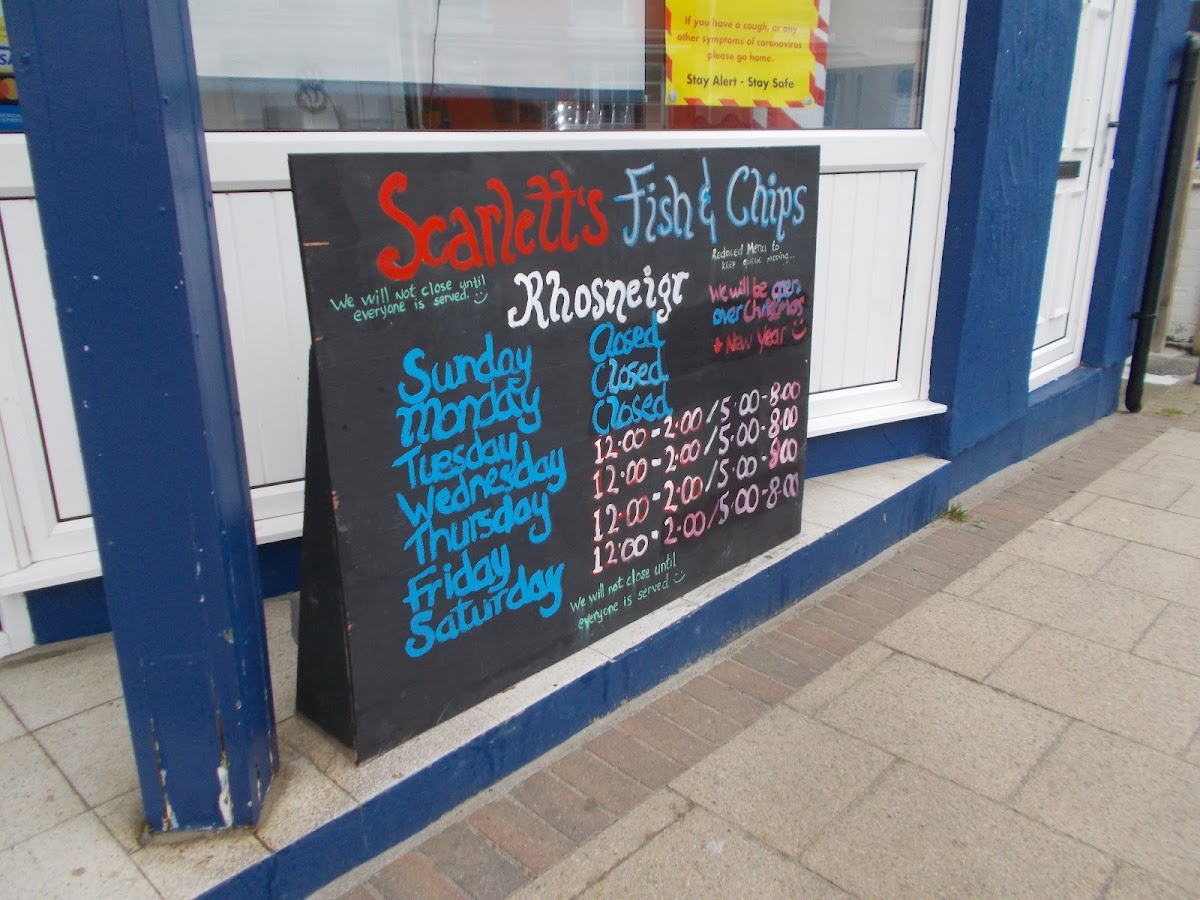 VISA
If you have a cough, or any
other symptoms of coronavirus
please go home.
Stay Alert - Stay Safe
Scarlett's Fish & Chips
Reduced Menu to
keep queue moving...
We will not close until
everyone is served.
Rhosneigr
We will be open
over Christmas
+ New Year
Sunday Closed
Monday Closed
Tuesday Closed
Wednesday 12.00-2.00/5.00-8.00
Thursday 12.00-2.00/5.00-8.00
Friday 12.00-2.00/5.00-8.00
Saturday 12.00-2.00/5.00-8.00
We will not close until
everyone is served